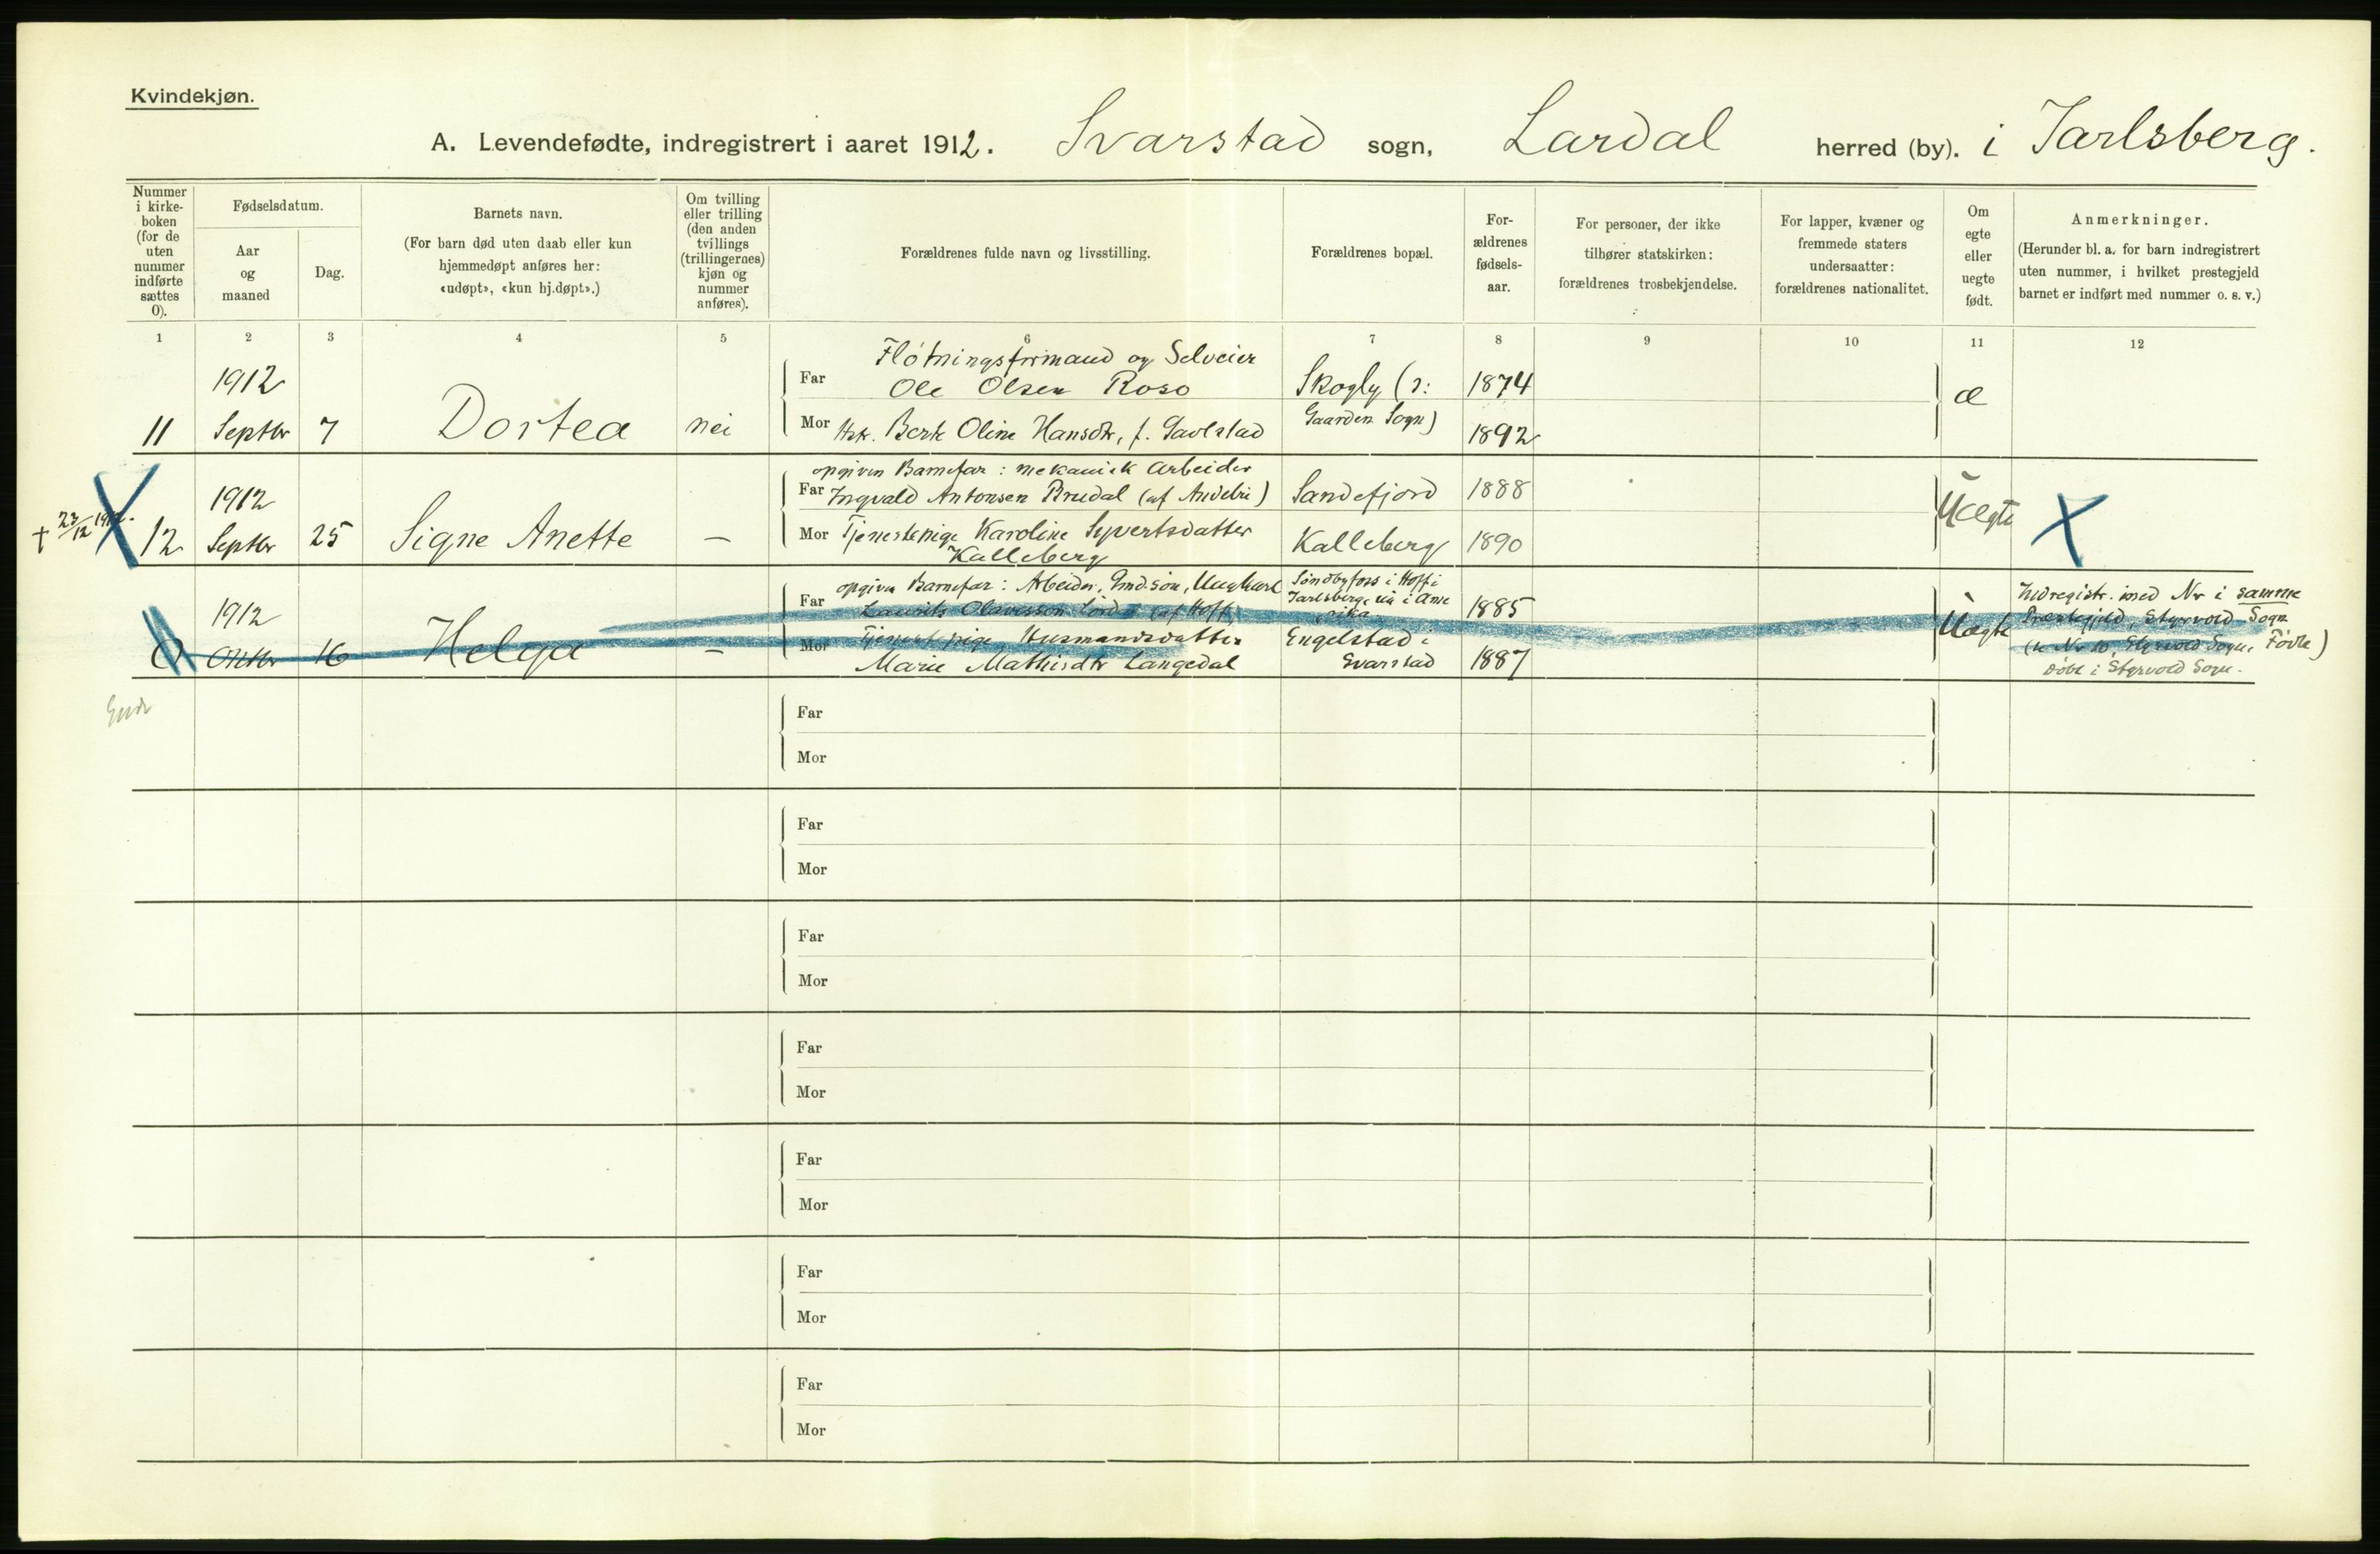 Kvindekjøn.
A. Levendefødte, indregistrert i aaret 1912. Svarstad sogn, Lardal herred (by). i Jarlsberg.
Nummer i kirke-boken (for de uten nummer indførte sættes 0).
Fødselsdatum.
Aar og maaned
Dag.
Barnets navn.
(For barn død uten daab eller kun hjemmedøpt anføres her: «udøpt», «kun hj.døpt».)
Om tvilling eller trilling (den anden tvillings (trillingernes) kjøn og nummer anføres).
Forældrenes fulde navn og livsstilling.
Forældrenes bopæl.
For-ældrenes fødsels-aar.
For personer, der ikke tilhører statskirken: forældrenes trosbekjendelse.
For lapper, kvæner og fremmede staters undersaatter: forældrenes nationalitet.
Om egte eller uegte født.
Anmerkninger.
(Herunder bl. a. for barn indregistrert uten nummer, i hvilket prestegjeld barnet er indført med nummer o. s. v.)
1 2 3 4 5 6 7 8 9 10 11 12
Fløtningsformand og Selveier
1912 Far Ole Olsen Roso Skogly (ɔ: 1874 æ
11 Septbr 7 Dortea nei Mor Hstr. Berte Oline Hansdtr, f. Gavlstad Gaarden Sogn) 1892
opgiven Barnefar: mekanisk Arbeider
1912 Far Ingvald Antonsen Brudal (af Andebu) Sandefjord 1888 Uægte
+ 23/12 1912. 12 Septbr 25 Signe Anette — Mor Tjenestepige Karoline Syvertsdatter Kalleberg 1890
Kalleberg
opgiven Barnefar: Arbeider, Gmd.søn, Ungkarl Sindbyfoss i Hoff i Indregistr. med Nr i samme
1912 Far Laurits Olavesson (af Hoff) Jarlsberg, nu i Ame 1885 Præstegjeld, Styrvold Sogn
rika
0 Oktbr 16 Helga — Mor Tjenestepige Husmandsdatter Engelstad i Uægte (se Nr 10, Styrvold Sogn. Fødte)
Marie Mathisdtr Langedal Svarstad 1887 døbt i Styrvold Sogn.
Far
Mor
Far
Mor
Far
Mor
Far
Mor
Far
Mor
Far
Mor
Far
Mor